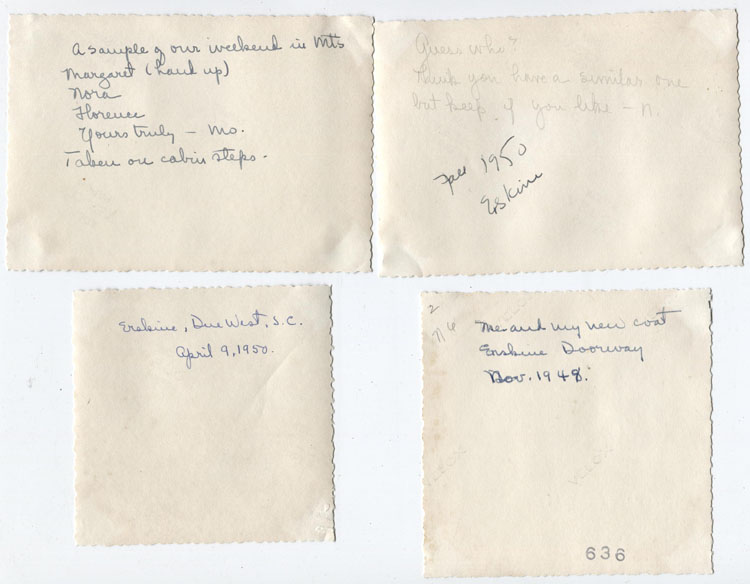 A sample of our weekend in Mts
Margaret (hand up)
Nora
Florence
Yours truly - Mo.
Taken on cabin steps.
Guess who?
Think you have a similar one
but keep if you like - n.
1950
Erskine
Erskine, Due West, S.C.
April 9, 1950.
2
Me and my new coat
Erskine Doorway
Nov. 1948.
VELOX
VELOX
636